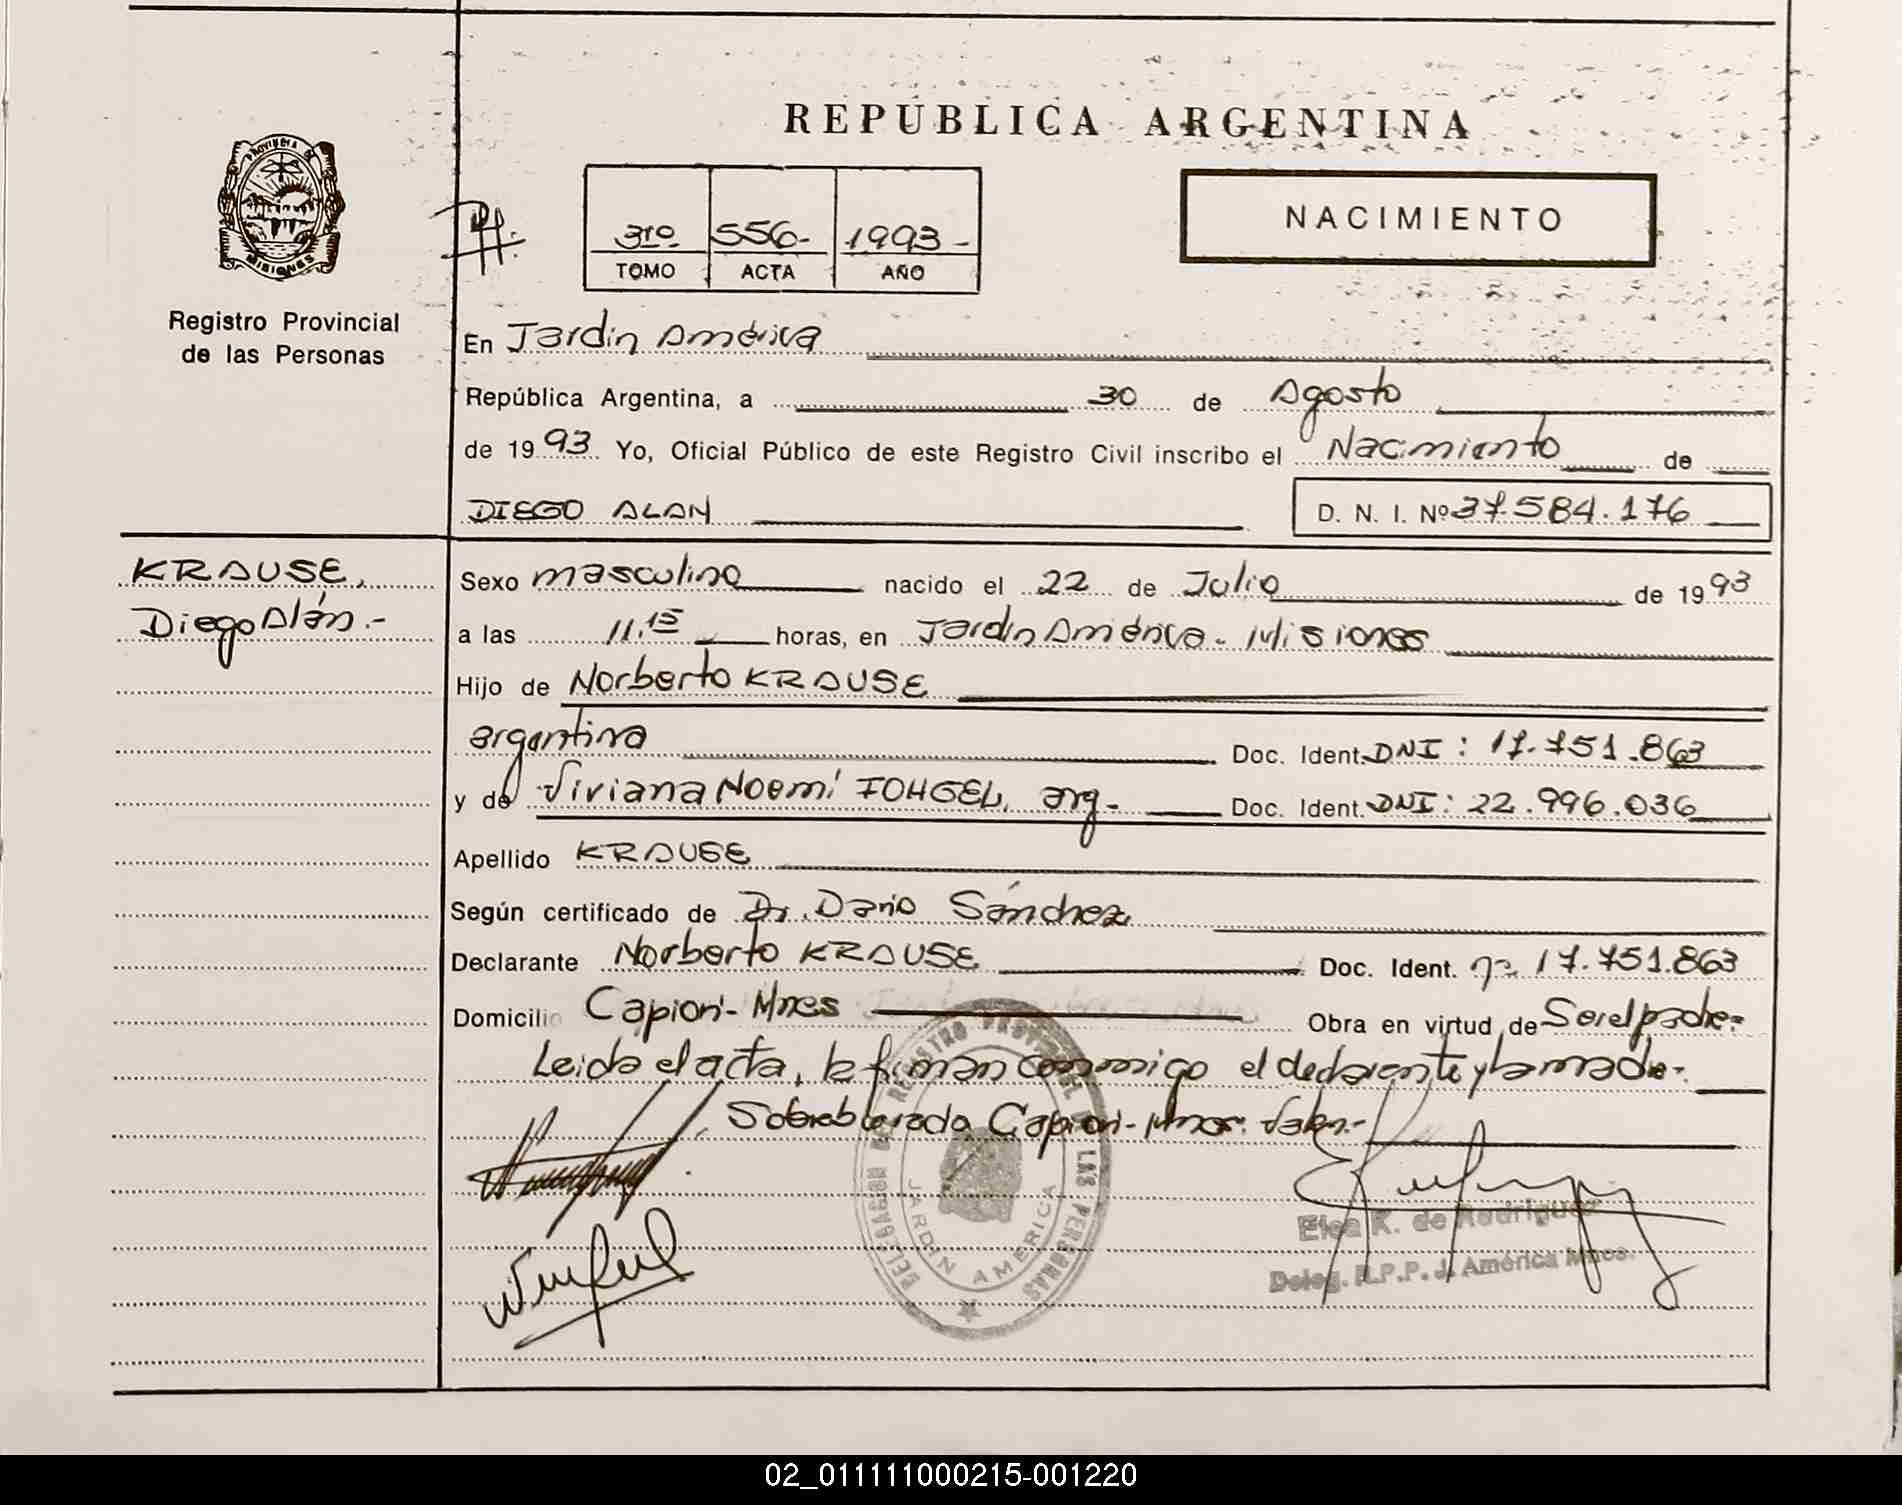 REPUBLICA ARGENTINA
PROVINCIA DE
MISIONES
Registro Provincial
de las Personas
3ro 556- 1993-
TOMO ACTA AÑO
NACIMIENTO
En Jardín América
República Argentina, a 30 de Agosto
de 1993 Yo, Oficial Público de este Registro Civil inscribo el Nacimiento de
DIEGO ALAN D. N. I. Nº 37.584.176
KRAUSE,
Diego Alán.-
Sexo masculino nacido el 22 de Julio de 1993
a las 11.15 horas, en Jardín América - Misiones
Hijo de Norberto KRAUSE
argentina Doc. Ident. DNI: 17.751.863
y de Viviana Noemí arg- Doc. Ident. DNI: 22.996.036
Apellido KRAUSE
Según certificado de Dr. Dario Sánchez
Declarante Norberto KRAUSE Doc. Ident. 17.751.863
Domicilio Capiovi- Mnes Obra en virtud de Ser el padre-
Leida el acta, la firman conmigo el declarante y la madre.-
Sobreborrado Capiovi- Mnes. Vale.-
DELEGACION DEL REGISTRO PROVINCIAL DE LAS PERSONAS
JARDIN AMERICA
Elea K. de Rodriguez
Deleg. R.P.P. J. América Mnes.
02_011111000215-001220